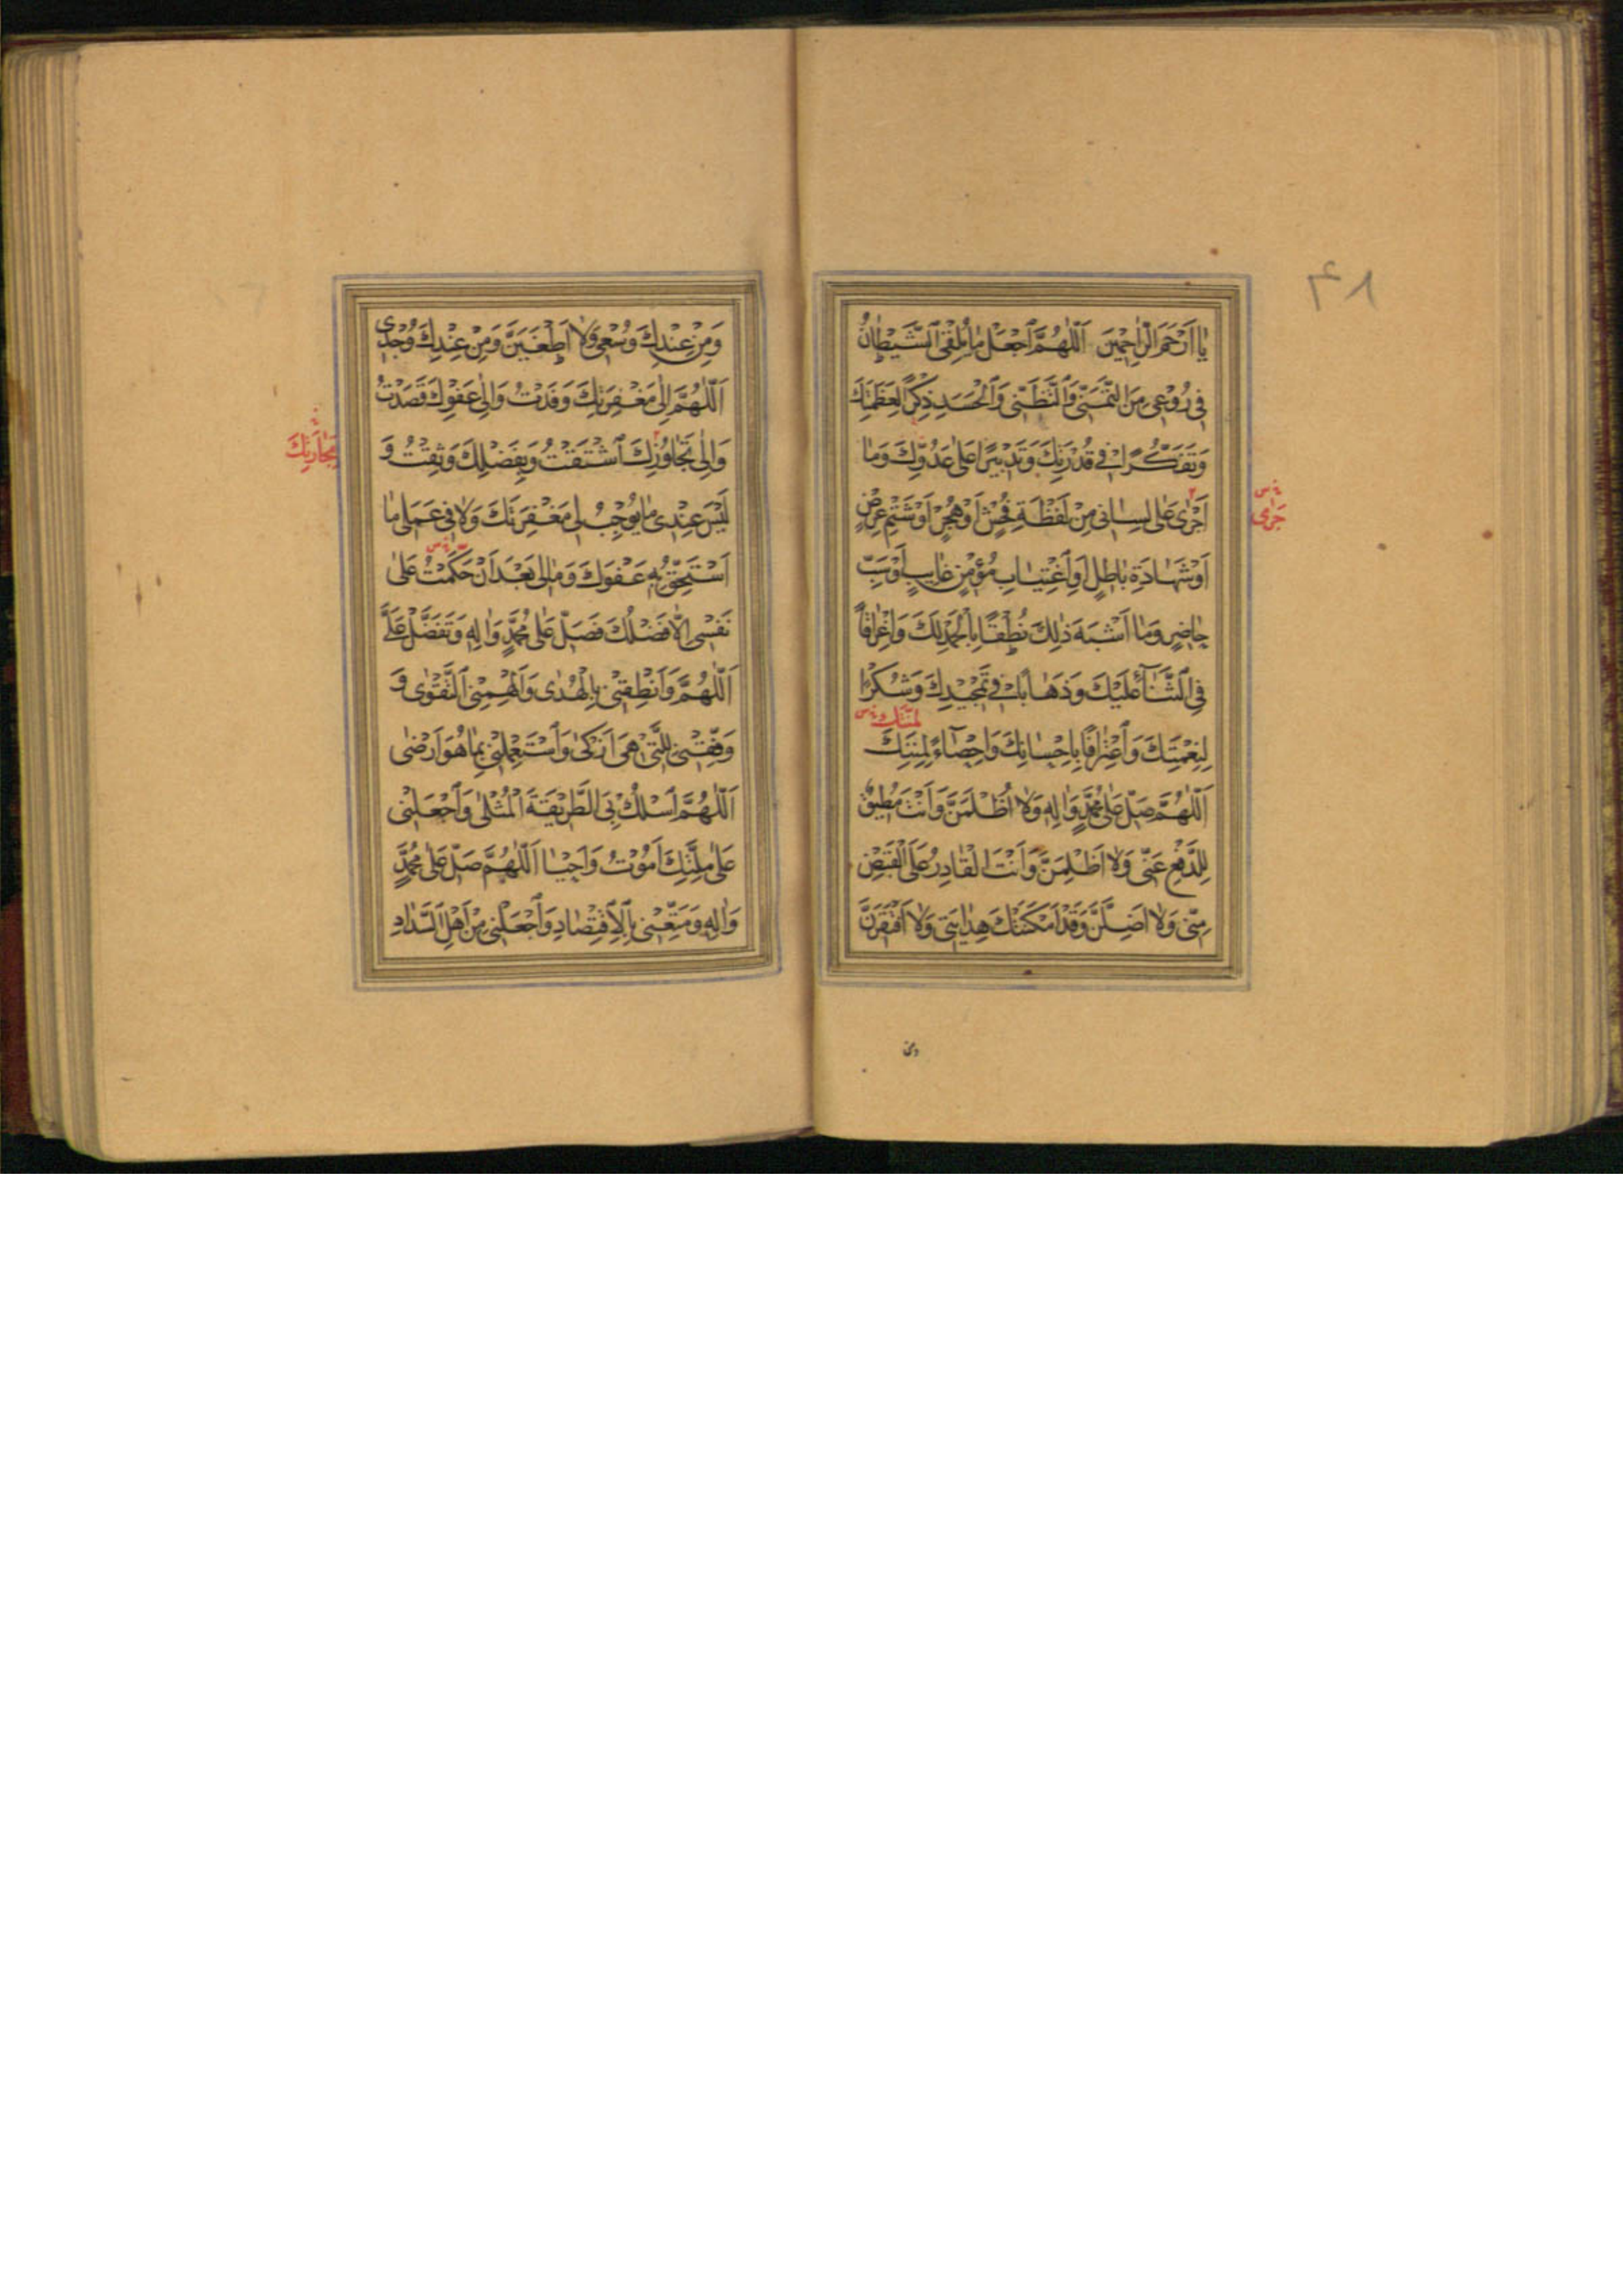 ٤٨
يٰا اَرْحَمَ الرّٰاحِمينَ اَللّٰهُمَّ اجْعَلْ مٰا يُلْقِى الشَّيْطٰانُ
فى رُوْعى مِنَ التَّمَنّى وَالتَّظَنّى وَالْحَسَدِ ذِكْرًا لِعَظَمَتِكَ
وَتَفَكُّرًا فى قُدْرَتِكَ وَتَدْبيرًا عَلىٰ عَدُوِّكَ وَمٰا
اَجْرىٰ عَلىٰ لِسٰانى مِنْ لَفْظَةِ فُحْشٍ اَوْ هُجْرٍ اَوْ شَتْمِ عِرْضٍ
جَرىٰ
اَوْ شَهٰادَةِ بٰاطِلٍ اَوِ اغْتِيٰابِ مُؤْمِنٍ غٰايِبٍ اَوْ سَبِّ
حٰاضِرٍ وَمٰا اَشْبَهَ ذٰلِكَ نُطْقًا بِالْحَمْدِ لَكَ وَاِغْرٰاقًا
فِى الثَّنٰآءِ عَلَيْكَ وَذَهٰابًا فى تَمْجيدِكَ وَشُكْرًا
لِمِنَنِكَ
لِنِعْمَتِكَ وَاعْتِرٰافًا بِاِحْسٰانِكَ وَاِحْصٰاءً لِمِنَنِكَ
اَللّٰهُمَّ صَلِّ عَلىٰ مُحَمَّدٍ وَاٰلِهِ وَلاٰ اُظْلَمَنَّ وَاَنْتَ مُطيقٌ
لِلدَّفْعِ عَنّى وَلاٰ اَظْلِمَنَّ وَاَنْتَ الْقٰادِرُ عَلَى الْقَبْضِ
مِنّى وَلاٰ اَضِلَّنَّ وَقَدْ اَمْكَنَتْكَ هِدٰايَتى وَلاٰ اَفْتَقِرَنَّ
ومن
وَمِنْ عِنْدِكَ وُسْعى وَلاٰ اَطْغَيَنَّ وَمِنْ عِنْدِكَ وُجْدى
اَللّٰهُمَّ اِلىٰ مَغْفِرَتِكَ وَفَدْتُ وَاِلىٰ عَفْوِكَ قَصَدْتُ
وَاِلىٰ تَجٰاوُزِكَ اشْتَقْتُ وَبِفَضْلِكَ وَثِقْتُ وَ
لَيْسَ عِنْدى مٰا يُوجِبُ لى مَغْفِرَتَكَ وَلاٰ فى عَمَلى مٰا
اَسْتَحِقُّ بِهِ عَفْوَكَ وَمٰا لى بَعْدَ اَنْ حَكَمْتُ عَلىٰ
نَفْسى اِلاّٰ فَضْلُكَ فَصَلِّ عَلىٰ مُحَمَّدٍ وَاٰلِهِ وَتَفَضَّلْ عَلَىَّ
اَللّٰهُمَّ وَاَنْطِقْنى بِالْهُدىٰ وَاَلْهِمْنِى التَّقْوىٰ وَ
وَفِّقْنى لِلَّتى هِىَ اَزْكىٰ وَاسْتَعْمِلْنى بِمٰا هُوَ اَرْضىٰ
اَللّٰهُمَّ اسْلُكْ بِىَ الطَّريقَةَ الْمُثْلىٰ وَاجْعَلْنى
عَلىٰ مِلَّتِكَ اَمُوتُ وَاَحْيٰا اَللّٰهُمَّ صَلِّ عَلىٰ مُحَمَّدٍ
وَاٰلِهِ وَمَتِّعْنى بِالْاِقْتِصٰادِ وَاجْعَلْنى مِنْ اَهْلِ السَّدٰادِ